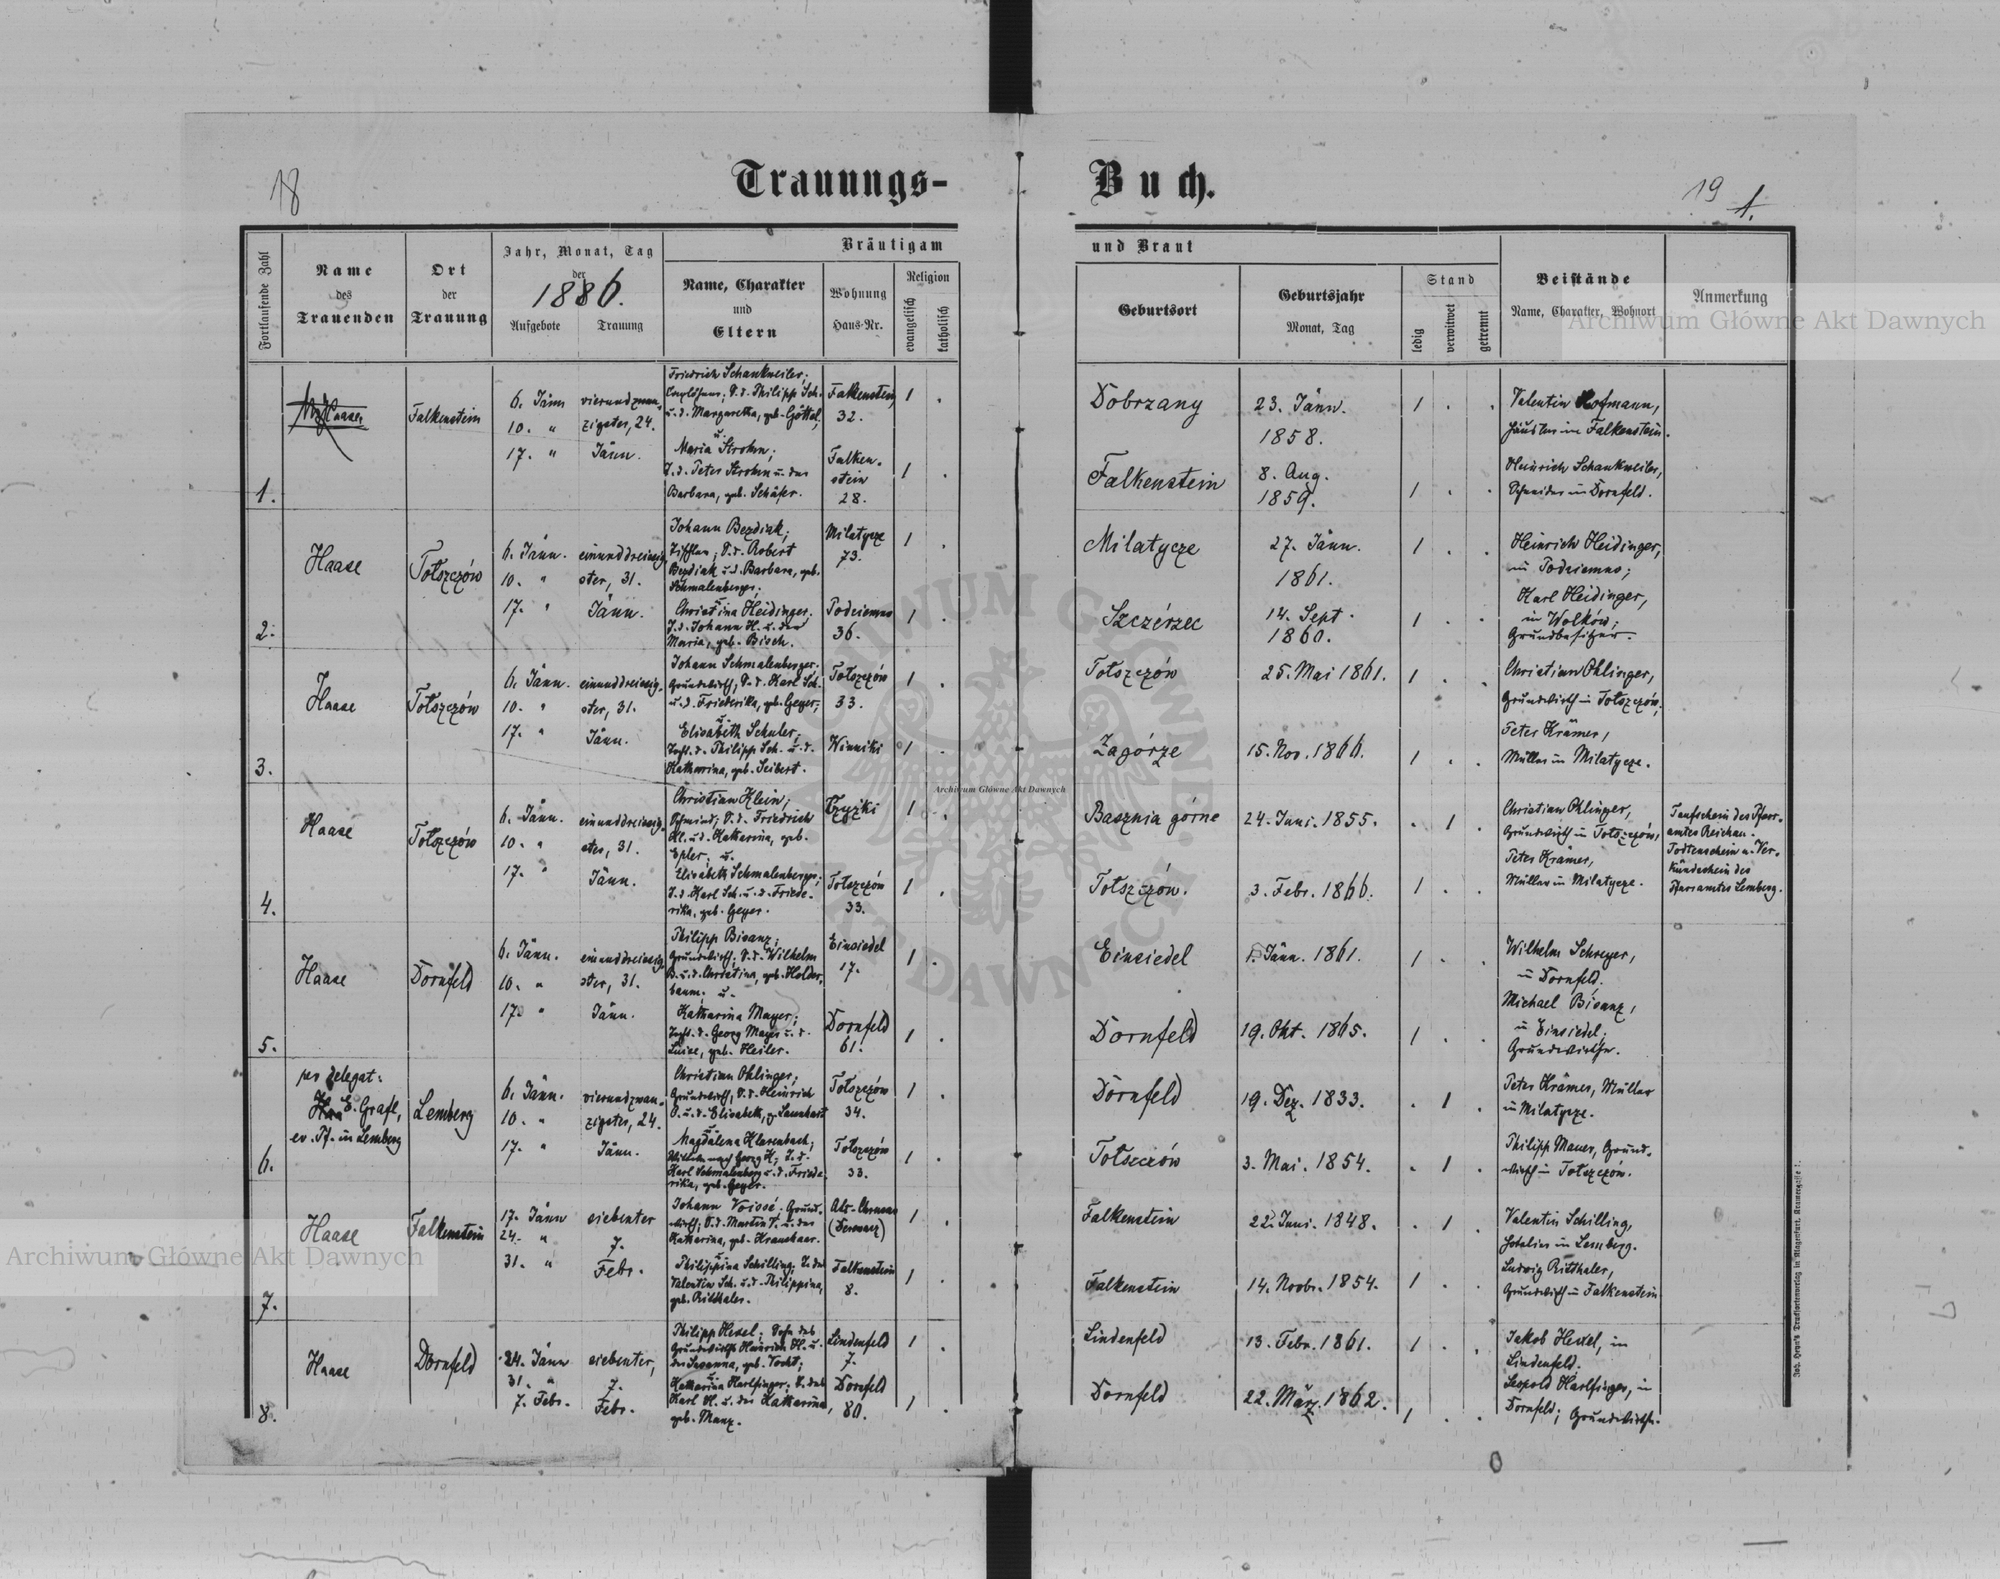 18
Trauungs-
Buch.
19
1.
Fortlaufende Zahl
Name
des
Trauenden
Ort
der
Trauung
Jahr, Monat, Tag
der
1886.
Aufgebote
Trauung
Bräutigam
Name, Charakter
und
Eltern
Wohnung
Haus-Nr.
Religion
evangelisch
katholisch
und Braut
Geburtsort
Geburtsjahr
Monat, Tag
Stand
ledig
verwitwet
getrennt
Beistände
Name, Charakter, Wohnort
Anmerkung
1.
Falkenstein
6. Jänn
10. "
17. "
vierundzwan-
zigster, 24.
Jänn.
Friedrich Schankweiler;
S. d. Philipp Sch.
u. d. Margaretha, geb. Göttel,
u.
Maria Strohm;
T. d. Peter Strohm u. der
Barbara, geb. Schäfer.
Falkenstein,
32.
Falken-
stein
28.
1 .
1 .
Dobrzany
23. Jänn.
1858.
1 . .
Falkenstein
8. Aug.
1859.
1 . .
Valentin Hofmann,
Häusler in Falkenstein.
Heinrich Schankweiler,
Schneider in Dornfeld.
2.
Haase
Tołszczów
6. Jänn.
10. "
17. "
einunddreissig-
ster, 31.
Jänn.
Johann Bezdiak;
Tischler; S. d. Robert
Bezdiak u. d. Barbara, geb.
Schmalenberger;
u.
Christina Heidinger;
T. d. Johann H. u. der
Maria, geb. Bisch.
Milatycze
73.
Podciemno
36.
1 .
1 .
Milatycze
27. Jänn.
1861.
1 . .
Szczérzec
14. Sept.
1860.
1 . .
Heinrich Heidinger,
in Podciemno;
Karl Heidinger,
in Wołków;
Grundbesitzer.
3.
Haase
Tołszczów
6. Jänn.
10. "
17. "
einunddreissig-
ster, 31.
Jänn.
Johann Schmalenberger;
Grundwirth; S. d. Karl Sch.
u. d. Friederika, geb. Geyer;
u.
Elisabeth Schuler;
Tocht. d. Philipp Sch. u. d.
Katharina, geb. Seibert.
Tołszczów
33.
Winniki
1 .
1 .
Tołszczów
25. Mai 1861.
1 . .
Zagórze
15. Nov. 1866.
1 . .
Christian Ohlinger,
Grundwirth in Tołszczów,
Peter Krämer,
Müller in Milatycze.
4.
Haase
Tołszczów
6. Jänn.
10. "
17. "
einunddreissig-
ster, 31.
Jänn.
Christian Klein;
Schmied; S. d. Friedrich
Kl. u. d. Katharina, geb.
Epler; u.
Elisabeth Schmalenberger;
T. d. Karl Sch. u. d. Friede-
rika, geb. Geyer.
Czyżki
Tołszczów
33.
1 .
1 .
Basznia górne
24. Juni. 1855.
. 1 .
Tołszczów.
3. Febr. 1866.
1 . .
Christian Ohlinger,
Grundwirth in Tołszczów,
Peter Krämer,
Müller in Milatycze.
Taufschein des Pfarr-
amtes Reichau.
Todtenschein u. Ver-
kündschein des
Pfarramtes Lemberg.
5.
Haase
Dornfeld
6. Jänn.
10. "
17. "
einunddreissig-
ster, 31.
Jänn.
Philipp Bisanz;
Grundwirth; S. d. Wilhelm
B. u. d. Christina, geb. Holder-
baum; u.
Katharina Mayer;
Tocht. d. Georg Mayer u. d.
Luise, geb. Heiler.
Einsiedel
17.
Dornfeld
61.
1 .
1 .
Einsiedel
1. Jänn. 1861.
1 . .
Dornfeld
19. Okt. 1865.
1 . .
Wilhelm Schreyer,
in Dornfeld.
Michael Bisanz,
in Einsiedel;
Grundwirthe.
6.
per delegat:
E. Grafl,
ev. Pf. in Lemberg
Lemberg
6. Jänn.
10. "
17. "
vierundzwan-
zigster, 24.
Jänn.
Christian Ohlinger;
Grundwirth; S. d. Heinrich
O. u. d. Elisabeth, g. Lauehart
u.
Magdalena Klarenbach;
Witwe nach Georg K; T. d.
Karl Schmalenberg u. d. Friede-
rika, geb. Geyer.
Tołszczów
34.
Tołszczów
33.
1 .
1 .
Dornfeld
19. Dez. 1833.
. 1 .
Tołszczów
3. Mai. 1854.
. 1 .
Peter Krämer, Müller
in Milatycze.
Philipp Mauer, Grund-
wirth in Tołszczów.
7.
Haase
Falkenstein
17. Jänn
24. "
31. "
siebenter
7.
Febr.
Johann Voissé; Grund-
wirth; S. d. Martin V. u. der
Katharina, geb. Kraushaar.
u.
Philippina Schilling; T. der
Valentin Sch. u. d. Philippina,
geb. Ritthaler.
(Dernacz)
Falkenstein
8.
1 .
1 .
Falkenstein
22. Juni. 1848.
. 1 .
Falkenstein
14. Novbr. 1854.
1 . .
Valentin Schilling,
Hotelier in Lemberg.
Ludwig Ritthaler,
Grundwirth in Falkenstein
8.
Haase
Dornfeld
24. Jänn
31. "
7. Febr.
siebenter,
7.
Febr.
Philipp Hexel; Sohn des
Grundwirths Heinrich H. u.
der Susanna, geb. Vocht;
u.
Katharina Harlfinger; T. des
Karl H. u. der Katharina,
geb. Manz.
Lindenfeld
7.
Dornfeld
80.
1 .
1 .
Lindenfeld
13. Febr. 1861.
1 . .
Dornfeld
22. März. 1862.
1 . .
Jakob Hexel, in
Lindenfeld.
Leopold Harlfinger, in
Dornfeld; Grundwirthe.
Archiwum Główne Akt Dawnych
Archiwum Główne Akt Dawnych
Archiwum Główne Akt Dawnych
ARCHIWUM GŁÓWNE AKT DAWNYCH